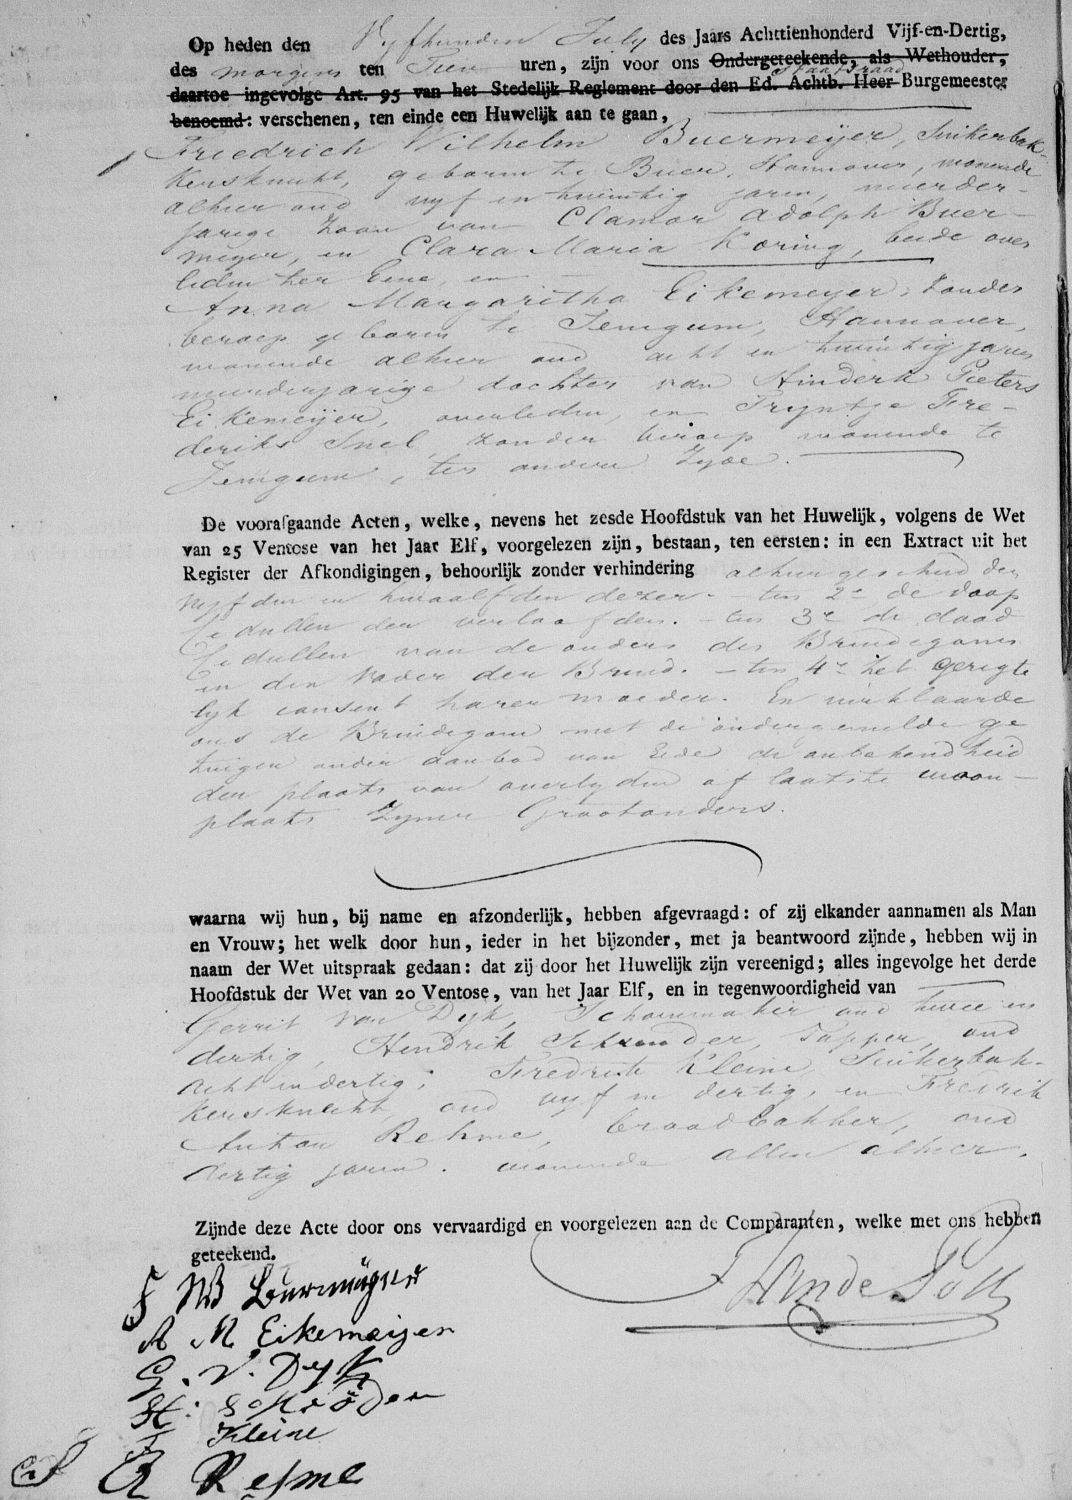 Op heden den Vyftienden July des Jaars Achttienhonderd Vijf-en-Dertig,
des morgens ten Tien uren, zijn voor ons Ondergeteekende, als Wethouder,
Staatsraad
daartoe ingevolge Art. 95 van het Stedelijk Reglement door den Ed. Achtb. Heer Burgemeester
benoemd: verschenen, ten einde een Huwelijk aan te gaan,
Friedrich Wilhelm Buermeijer, Suikerbak-
kersknecht, geboren te Buer, Hannover, wonende
alhier oud vyf en twintig jaren, meerder-
jarige Zoon van Clamor Adolph Buer-
meyer, en Clara Maria Koring, beide over
leden ter Eene, en
Anna Margaritha Eikemeyer, zonder
beroep geboren te Jemgum, Hannover,
wonende alhier oud acht en twintig jaren
meerderjarige dochter van Hinderk Pieters
Eikemeijer, overleden, en Tryntje Fre-
deriks Snel, zonder beroep wonende te
Jemgum, ter andere Zyde.
De voorafgaande Acten, welke, nevens het zesde Hoofdstuk van het Huwelijk, volgens de Wet
van 25 Ventose van het Jaar Elf, voorgelezen zijn, bestaan, ten eersten: in een Extract uit het
Register der Afkondigingen, behoorlijk zonder verhindering alhier geschied den
vyfden en twaalfden dezer. - ten 2e de doop
Cedullen der verloofden. - ten 3e de dood
Cedullen van de ouders des Bruidegoms
en den Vader der Bruid. - ten 4e het geregte
lyk consent harer moeder. En verklaarde
ons de Bruidegom met de ondergemelde ge
tuigen onder aanbod van Eede de onbekendheid
der plaats van overlyden of laatste woon-
plaats Zyner Grootouders.
waarna wij hun, bij name en afzonderlijk, hebben afgevraagd: of zij elkander aannamen als Man
en Vrouw; het welk door hun, ieder in het bijzonder, met ja beantwoord zijnde, hebben wij in
naam der Wet uitspraak gedaan: dat zij door het Huwelijk zijn vereenigd; alles ingevolge het derde
Hoofdstuk der Wet van 20 Ventose, van het Jaar Elf, en in tegenwoordigheid van
Gerrit van Dyk, Schoenmaker oud twee en
dertig, Hendrik Schroder, Tapper, oud
acht en dertig; Fredrik Kleine, Suikerbak-
kersknecht oud vyf en dertig, en Fredrik
Anton Rehme, broodbakker, oud
dertig jaren. wonende allen alhier.
Zijnde deze Acte door ons vervaardigd en voorgelezen aan de Comparanten, welke met ons hebben
geteekend.
F W Buermeÿer
A M Eikemeijer
G. V. Dyk
H: Schröder
F Kleine
F A Rehme